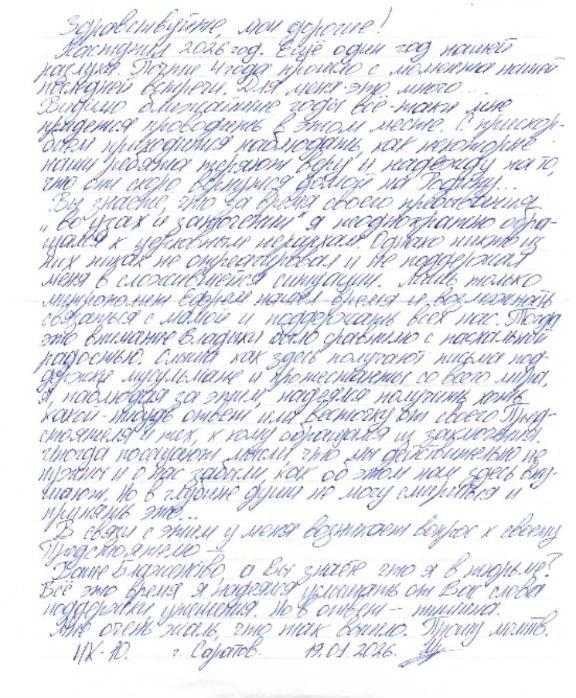 Здравствуйте, мои дорогие!
Наступил 2026 год. Ещё один год нашей
разлуки. Почти 4 года прошло с момента нашей
последней встречи. Для меня это много...
Видимо ближайшие годы всё-таки мне
придется проводить в этом месте. С прискор-
бием приходится наблюдать, как некоторые
наши ребята теряют веру и надежду на то,
что они скоро вернутся домой на Родину...
Вы знаете, что за время своего пребывания
"во узах и заточении" я неоднократно обра-
щался к церковным иерархам. Однако никто из
них никак не отреагировал и не поддержал
меня в сложившейся ситуации. Лишь только
митрополит Ефрем нашел время и возможность
связаться с мамой и поддержать всех нас. Тогда
это внимание Владыки было сравнимо с пасхальной
радостью. Слыша как здесь получают письма под-
держки мусульмане и протестанты со всего мира,
я, наблюдая за этим, надеялся получить хоть
какой-нибудь ответ или весточку от своего Пред-
стоятеля и тех, к кому обращался из заключения.
Иногда посещают мысли что мы действительно не
нужны и о нас забыли как об этом нам здесь вну-
шают. Но в глубине души не могу смириться и
принять это...
В связи с этим у меня возникает вопрос к своему
Предстоятелю —
Ваше Блаженство, а Вы знаете что я в тюрьме?
Всё это время я надеялся услышать от Вас слова
поддержки утешения. Но в ответ – тишина.
Мне очень жаль, что так вышло. Прошу молитв.
г. Саратов. 19.01.2026.